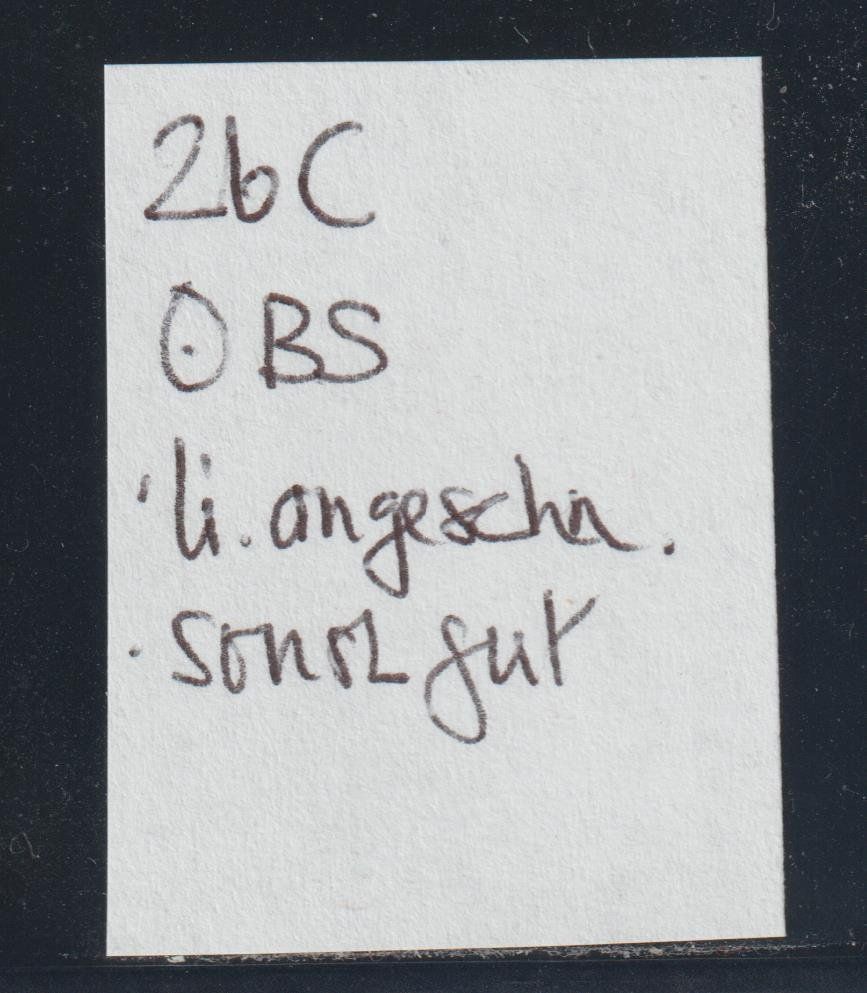 2b C
⊙ BS
li. angeschn.
sonst gut